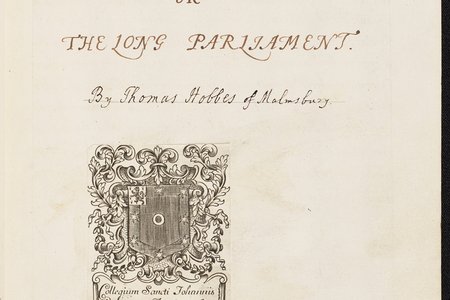 OR
THE LONG PARLIAMENT.
By Thomas Hobbes of Malmsbury.
Collegium Sancti Johannis